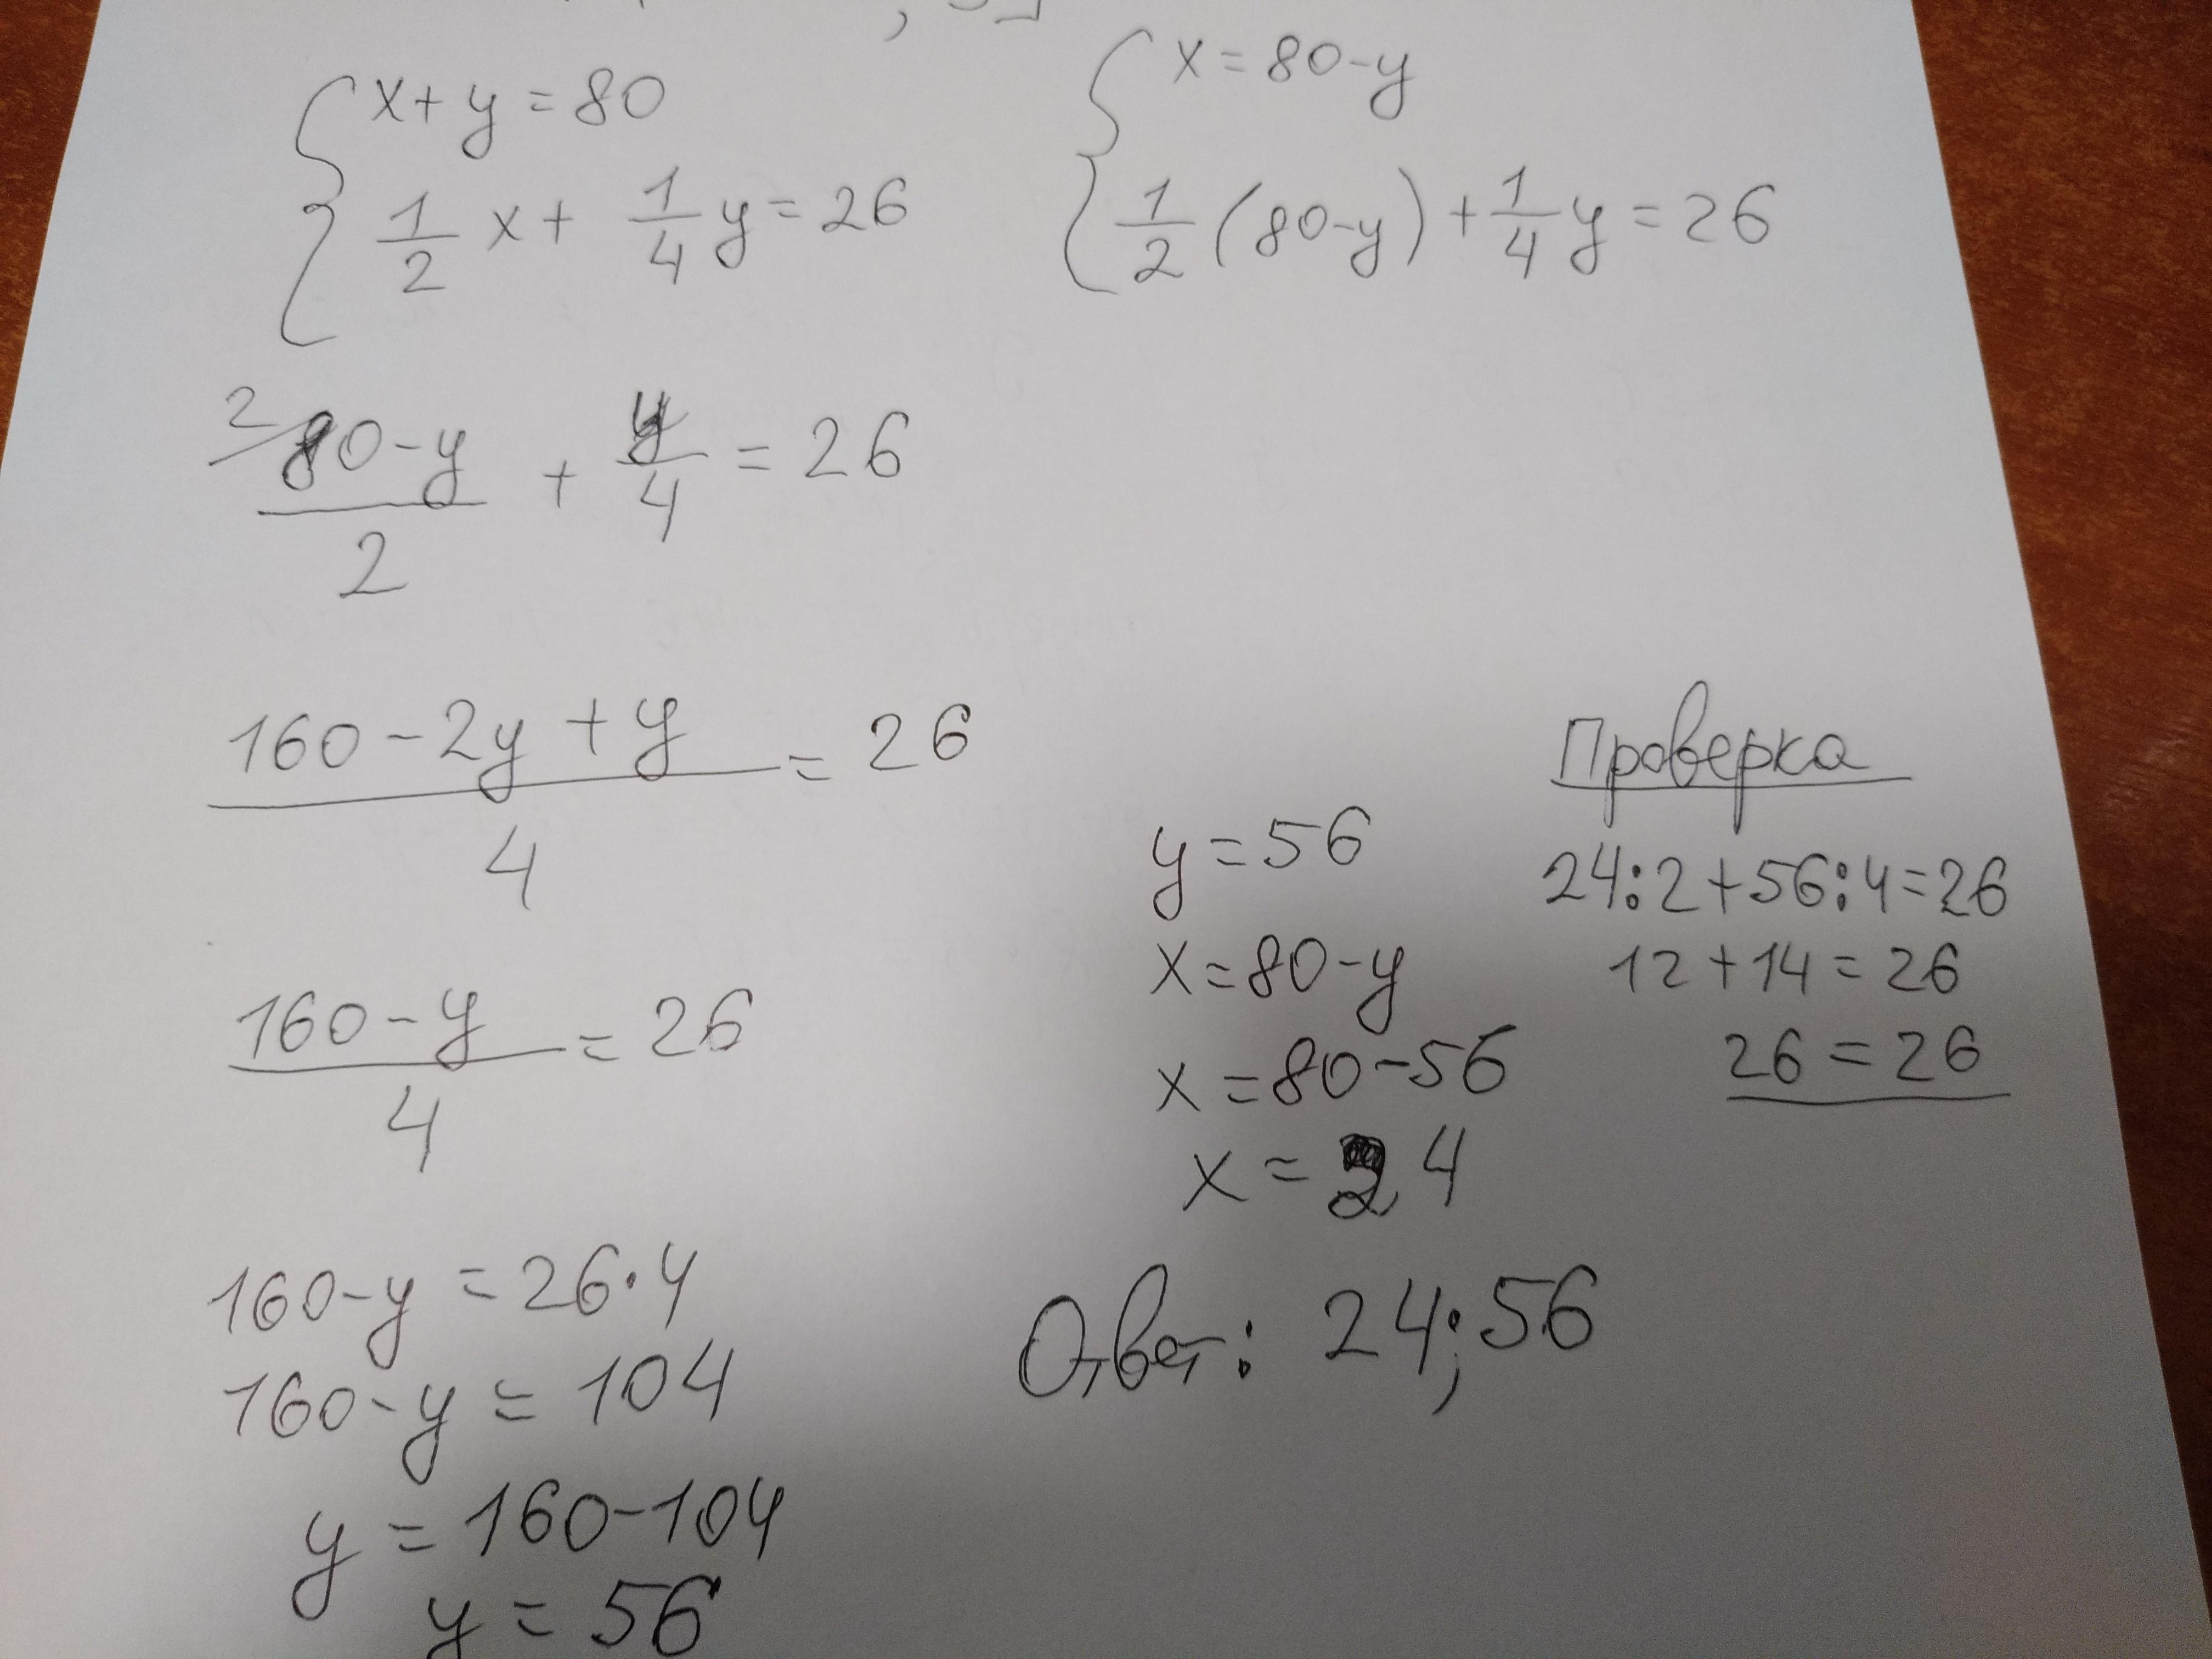 x+y=80
1/2 x + 1/4 y = 26
x=80-y
1/2 (80-y) + 1/4 y = 26
2
80-y/2 + y/4 = 26
160-2y+y/4 = 26
160-y/4 = 26
160-y=26·4
160-y=104
y=160-104
y=56
y=56
x=80-y
x=80-56
x=24
Проверка
24:2+56:4=26
12+14=26
26=26
Ответ: 24;56